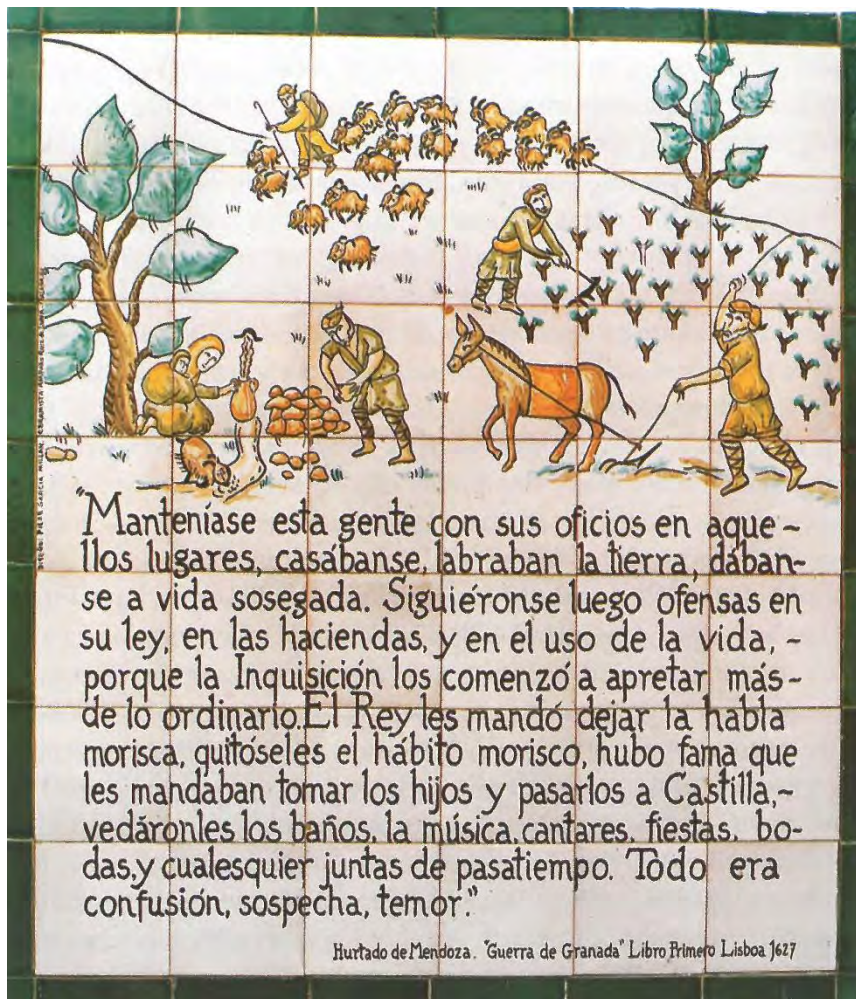 "Manteníase esta gente con sus oficios en aque~
llos lugares, casábanse, labraban la tierra, dában-
se a vida sosegada. Siguiéronse luego ofensas en
su ley, en las haciendas, y en el uso de la vida, -
porque la Inquisición los comenzó a apretar más-
de lo ordinario. El Rey les mandó dejar la habla
morisca, quitóseles el hábito morisco, hubo fama que
les mandaban tomar los hijos y pasarlos a Castilla,~
vedáronles los baños, la música, cantares, fiestas, bo-
das, y cualesquier juntas de pasatiempo. Todo era
confusión, sospecha, temor."
Hurtado de Mendoza. "Guerra de Granada" Libro Primero Lisboa 1627
PILAR GARCÍA MILLÁN, CERAMISTA